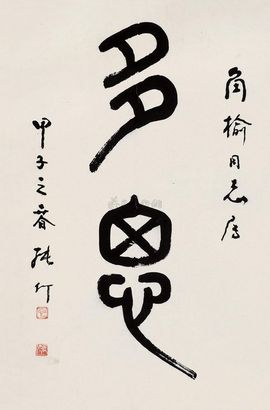 角榆同志属
多思
甲子之春 张仃